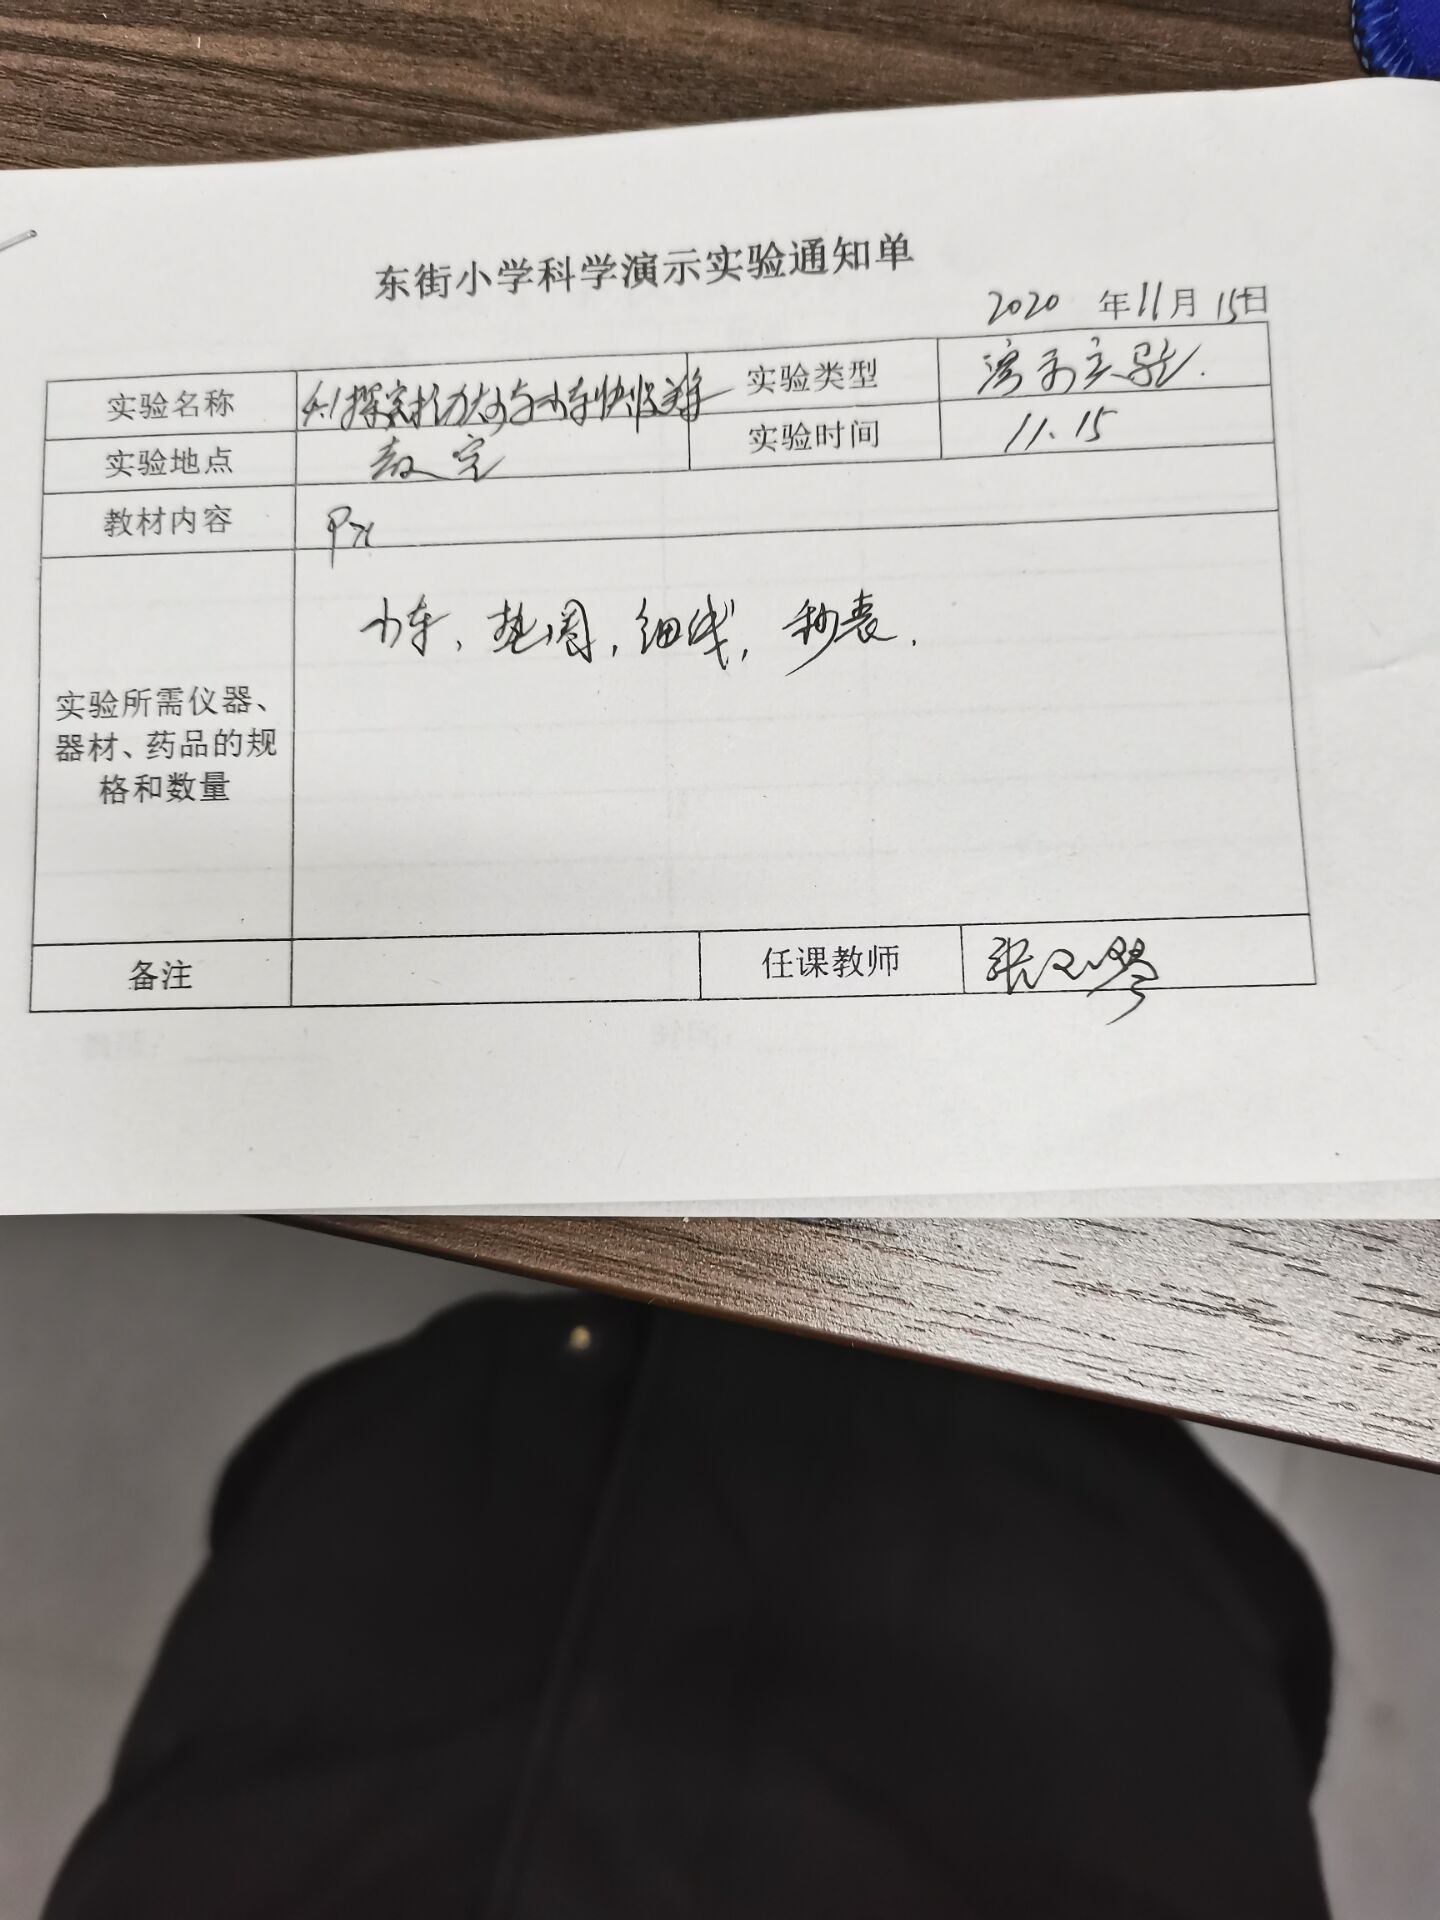 东街小学科学演示实验通知单
2020 年 11 月 15 日
实验名称 4.1探究拉力大小与小车快慢关系 实验类型 演示实验.
实验地点 教室 实验时间 11.15
教材内容
小车,垫圈,细线,秒表.
实验所需仪器、
器材、药品的规
格和数量
备注 任课教师 张